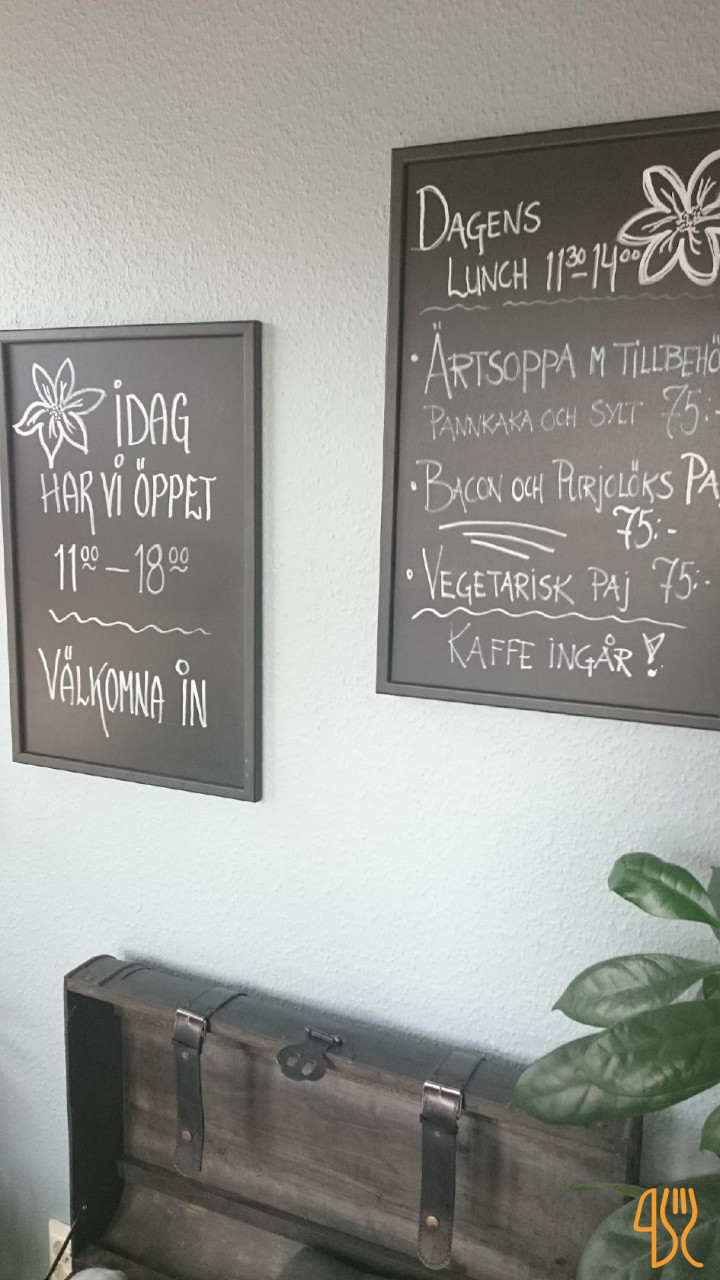 IDAG
HAR VI ÖPPET
1100 – 1800
VÄLKOMNA IN
DAGENS
LUNCH 1130-1400
• ÄRTSOPPA M TILLBEHÖ
PANNKAKA OCH SYLT 75:-
• BACON OCH PURJOLÖKS PA
75:-
• VEGETARISK PAJ 75:-
KAFFE INGÅR!